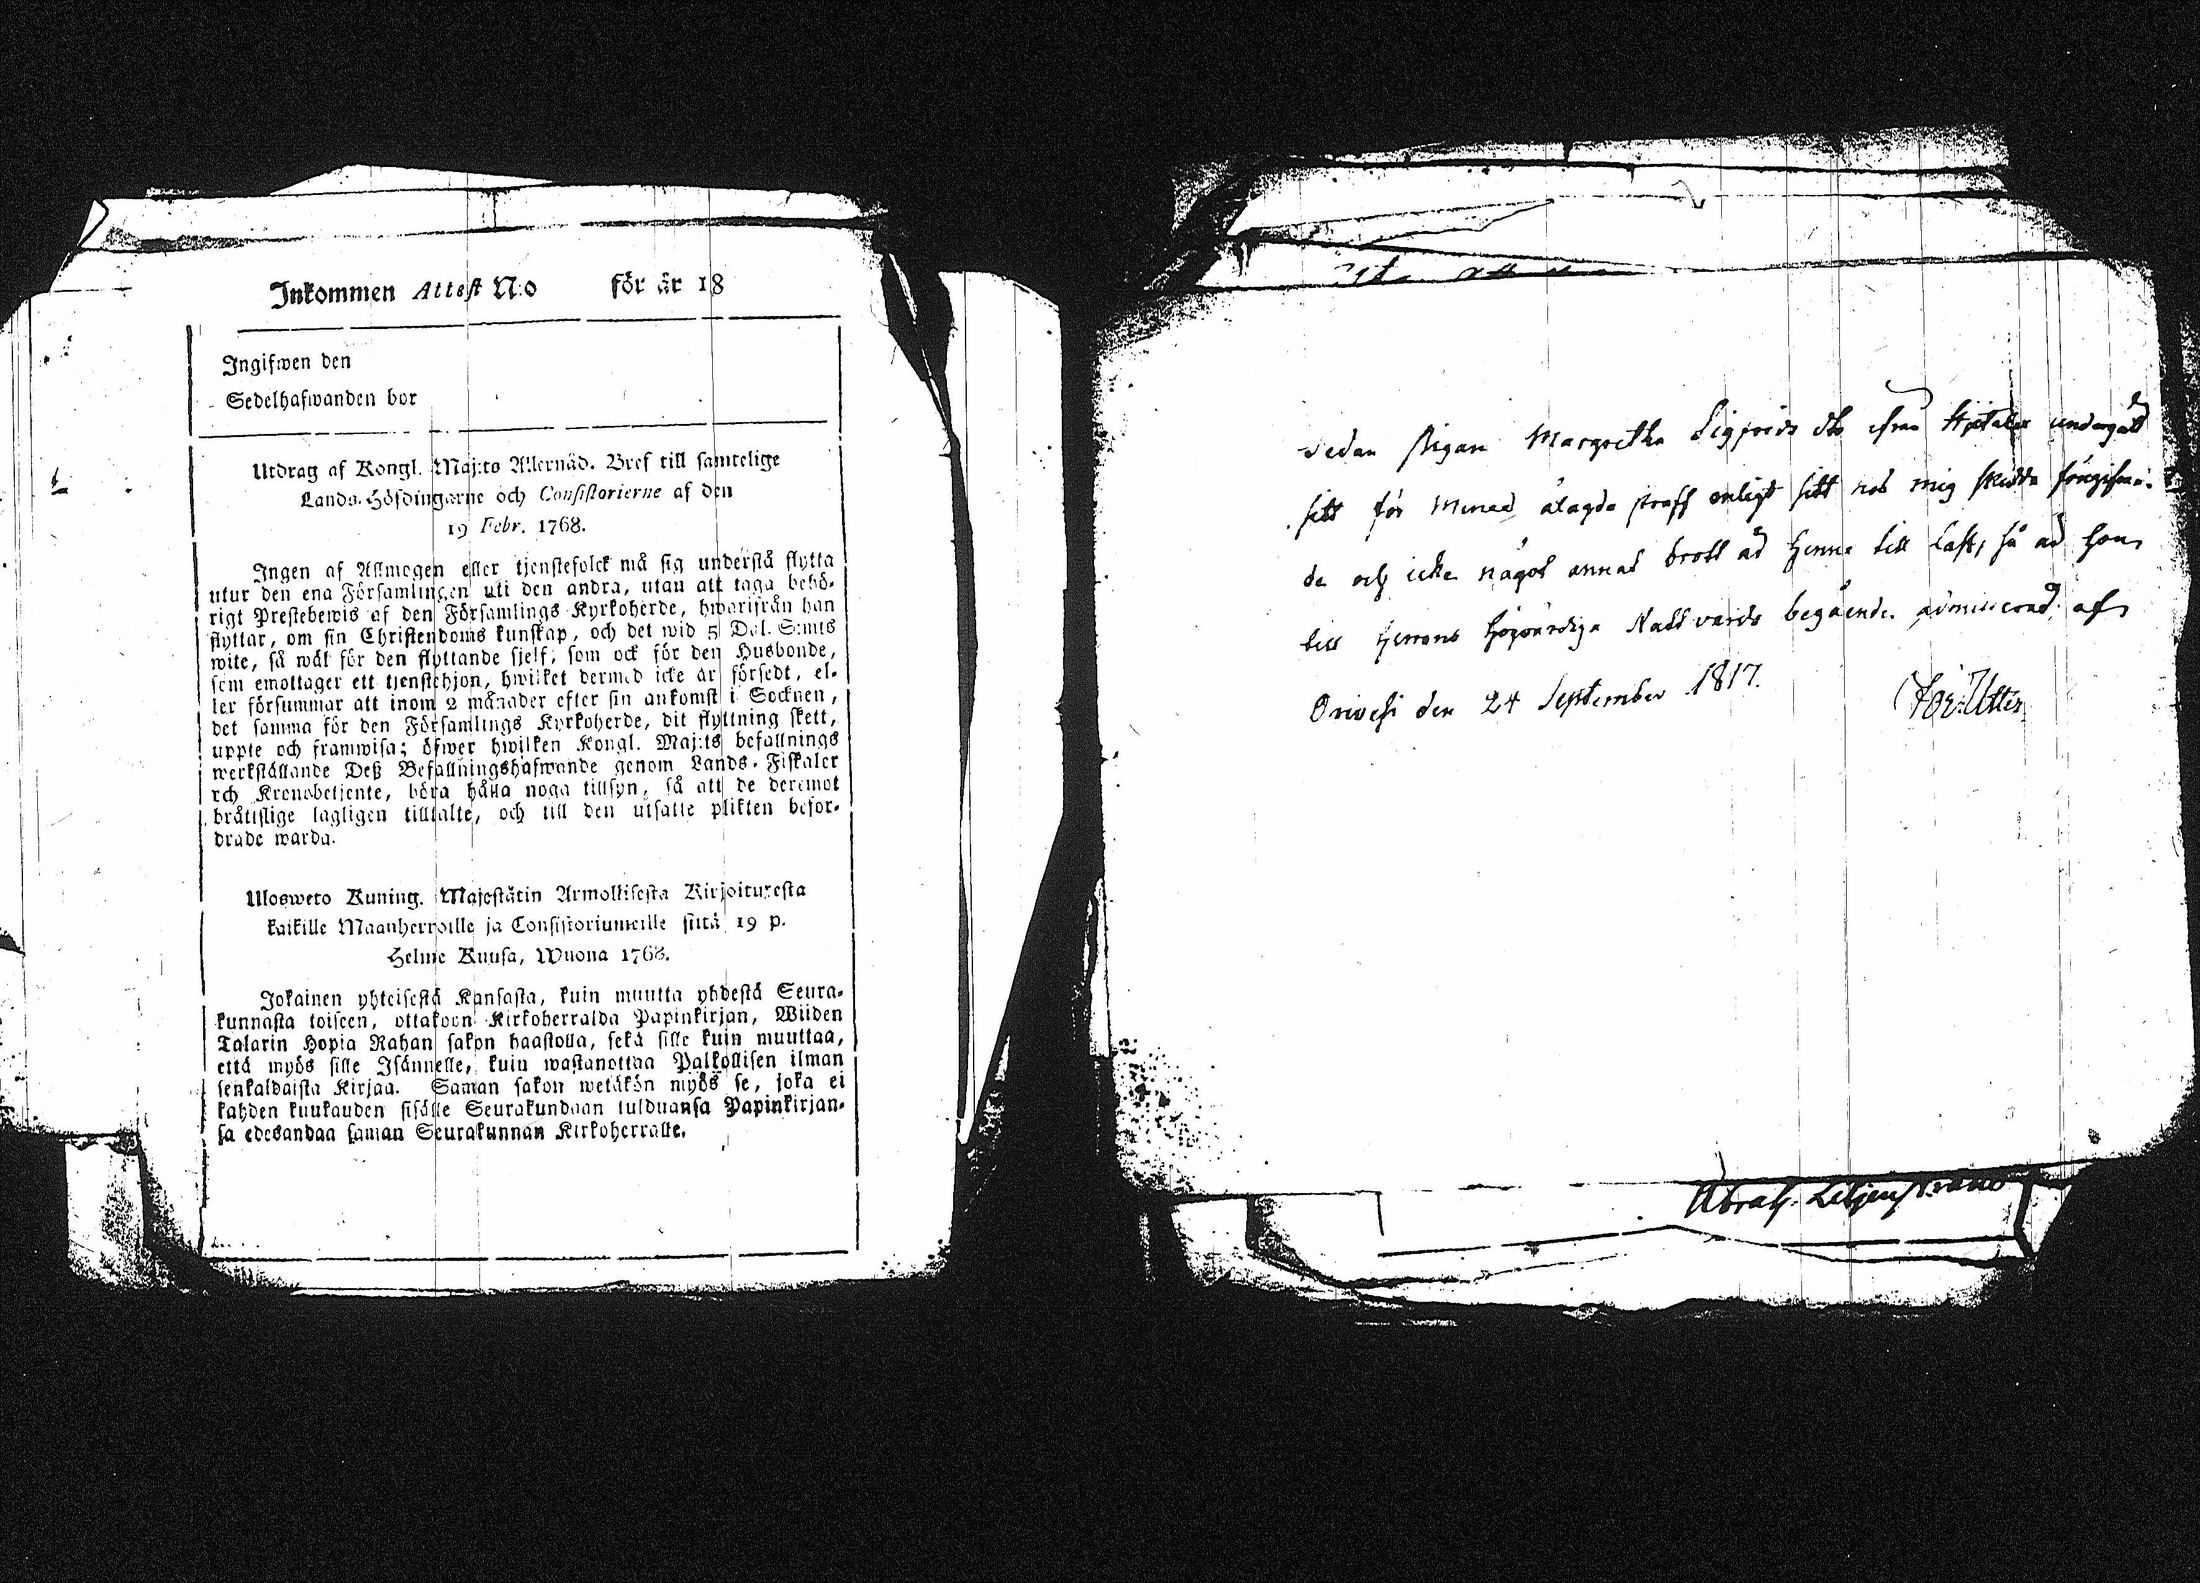 Inkommen Attest N:o för år 18
Ingifwen den
Sedelhafwanden bor
Utdrag af Kongl. Maj:ts Allernåd. Bref till samtelige
Lands-Höfdingarne och Consistorierne af den
19 Febr. 1768.
Ingen af Allmogen eller tjenstefolck må sig understå flytta
utur den ena Församlingen uti den andra, utan att taga behö-
rigt Prestebewis af den Församlings Kyrkoherde, hwarifrån han
flyttar, om sin Christendoms kunskap, och det wid 5 Dal. S:mts
wite, så wäl för den flyttande sjelf, som ock för den Husbonde,
som emottager ett tjenstehjon, hwilket dermed icke är försedt, el-
ler försummar att inom 2 månader efter sin ankomst i Socknen,
det samma för den Församlings Kyrkoherde, dit flyttning skett,
uppte och framwisa; öfwer hwilken Kongl. Maj:ts befallnings
werkställande Deß Befallningshafwande genom Lands-Fiskaler
och Kronobetjente, böra hålla noga tillsyn, så att de deremot
bråtislige lagligen tilltalte, och till den utsatte plikten befor-
drade warda.
Ulosweto Kuning. Majestätin Armollisesta Kirjoituxesta
kaikille Maanherroille ja Consistoriumeille siitä 19 p.
Helme Kuusa, Wuona 1768.
Jokainen yhteisestä Kansasta, kuin muutta yhdestä Seura-
kunnasta toiseen, ottakoon Kirkoherralda Papinkirjan, Wiiden
Talarin Hopia Rahan sakon haastolla, sekä sille kuin muuttaa,
että myös sille Isännelle, kuin wastanottaa Palkollisen ilman
senkaldaista Kirjaa. Saman sakon wetäkön myös se, joka ei
kahden kuukauden sisälle Seurakundaan tulduansa Papinkirjan-
sa edesandaa saman Seurakunnan Kirkoherralle.
Sedan Pigan Margretha Sigfrids dtr ifrån undergådt
sitt för Mened ålagda straff enligt sitt hos mig skedda föregifwan-
de och icke något annat brott är Henne till last, så är hon
till Herrans Högwärdiga Nattvards begående admitterad af
Orivesi den 24 September 1817.
Abrah. Liljenstrand